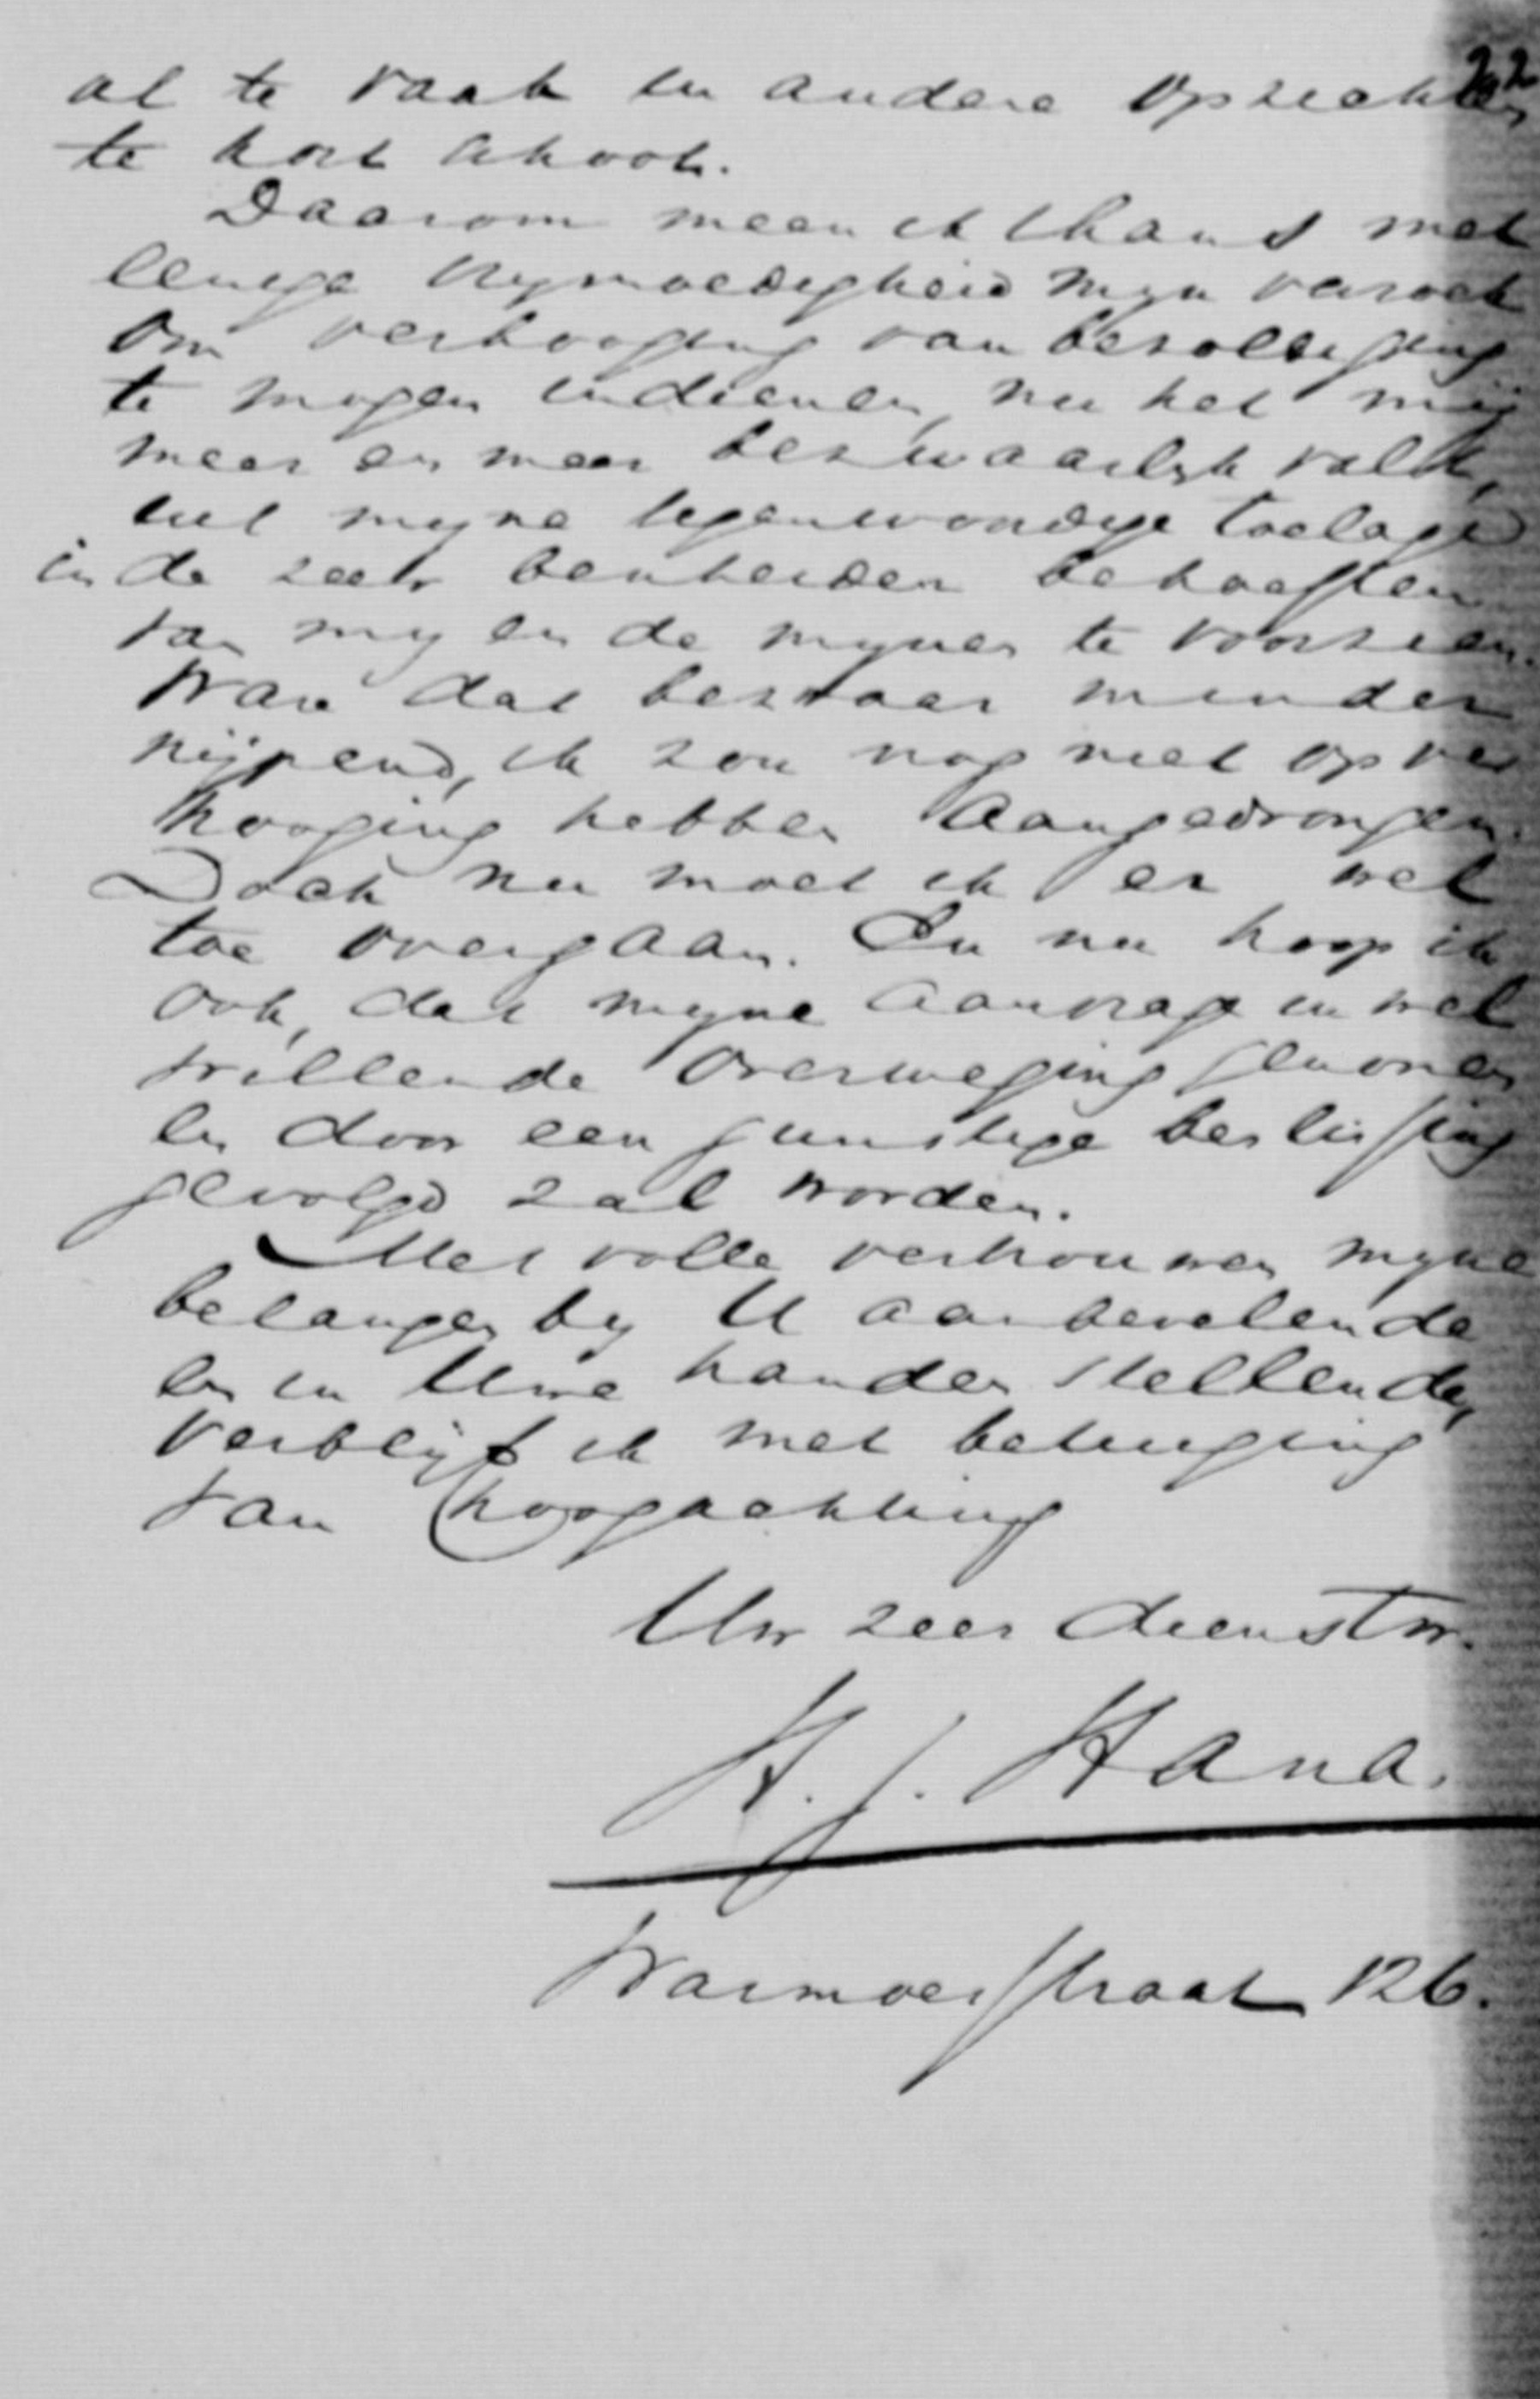 al te vaak in andere opzichten
te kort schoot.
Daarom meen ik thans met
eenige vrymoedigheid myn verzoek
om verhooging van bezoldiging
te mogen indienen, nu het mij
meer en meer bezwaarlyk valt,
uit myne tegenwoordige toelage
in de zeer bescheiden behoeften
van my en de mynen te voorzien.
Ware dat bezwaar minder
nijpend, ik zou nog niet op ver
hooging hebben aangedrongen.
Doch nu moet ik er wel
toe overgaan. En nu hoop ik
ook, dat myne aanvrage in wel
willende overweging genomen
en door een gunstige beslissing
gevolgd zal worden.
Met volle vertrouwen myne
belangen by U aanbevelende
en in Uwe handen stellende,
verblijf ik met betuiging
van hoogachting
Uw zeer dienstw.
H. J. Hana.
Warmoesstraat 126.